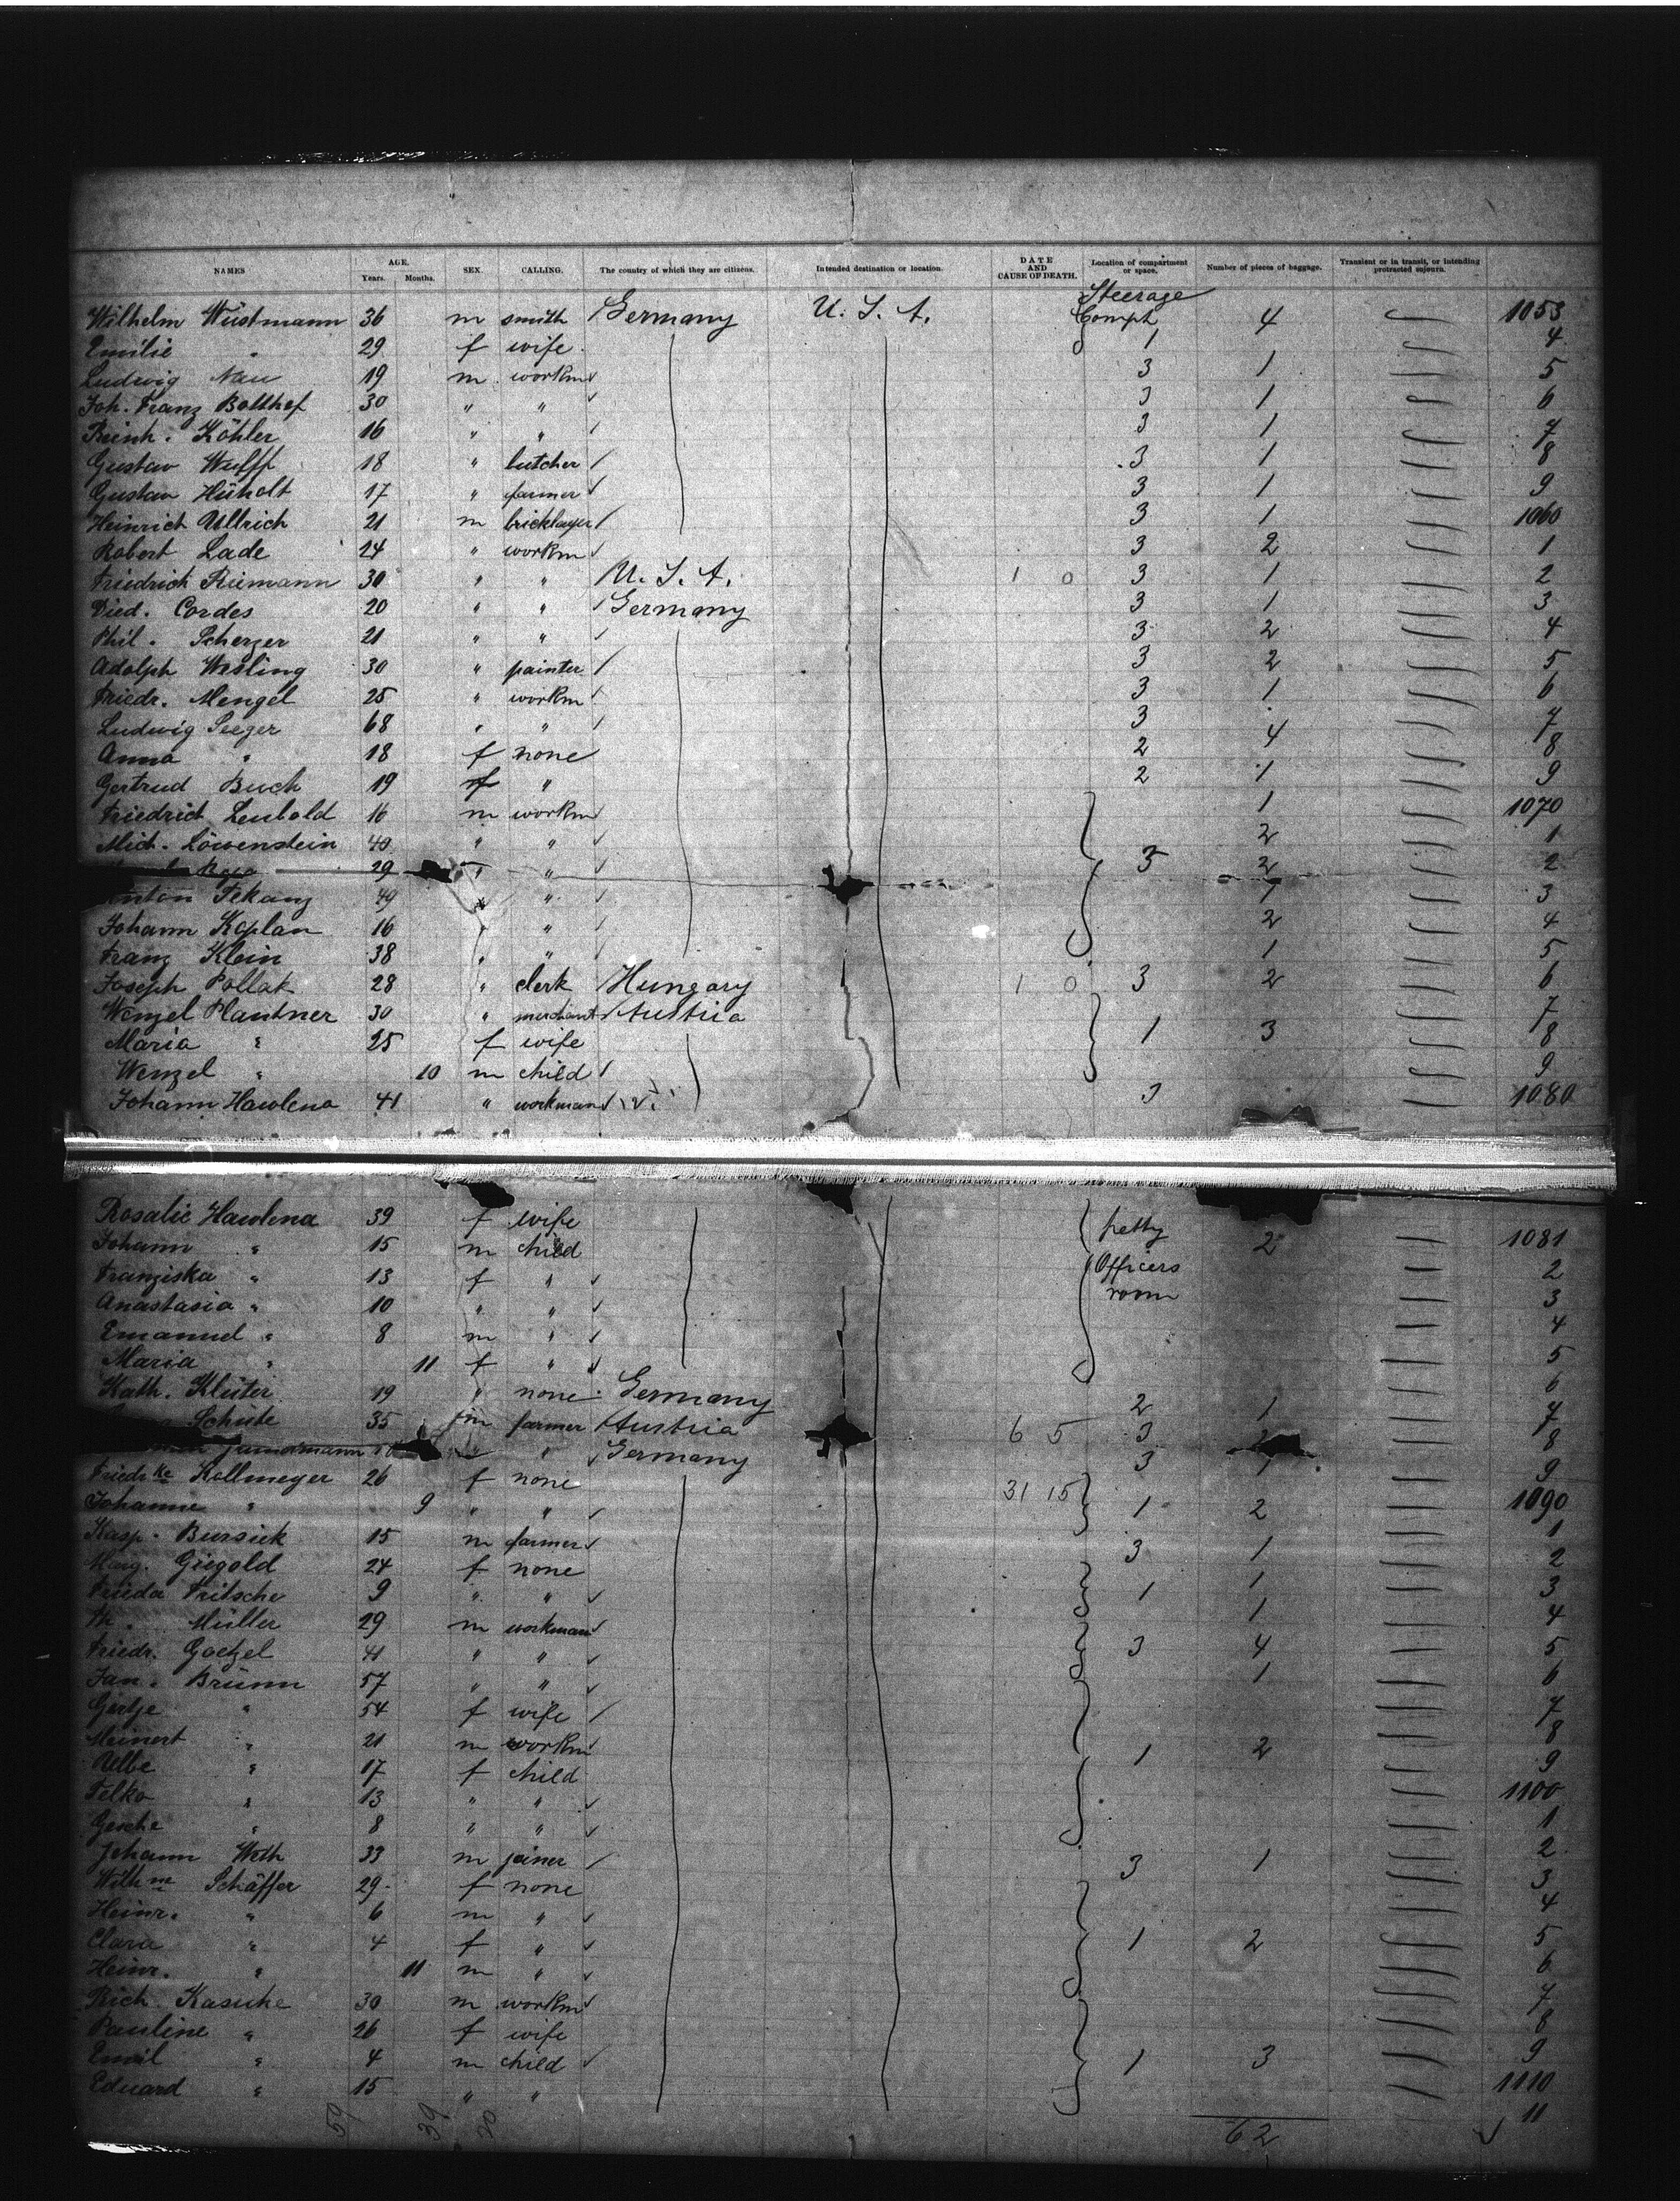 NAMES AGE. Years. Months. SEX. CALLING. The country of which they are citizens. Intended destination or location. DATE AND CAUSE OF DEATH. Location of compartment or space. Number of pieces of baggage. Transient or in transit, or intending protracted sojourn.
Steerage
Wilhelm Wüstmann 36 m smith Germany U. S. A. Compt 4 1053
Emilie " 29 f wife 1 4
Ludwig Nau 19 m workm 3 1 5
Joh. Franz Botthof 30 " " 3 1 6
Reinh. Köhler 16 " " 3 1 7
Gustav Wulff 18 " butcher 3 1 8
Gustav 17 " farmer 3 1 9
Heinrich Ullrich 21 m bricklayer 3 1 1060
Robert Lade 24 " workm 3 2 1
Friedrich Riemann 30 " " U. S. A. 1 0 3 1 2
Died. Cordes 20 " " Germany 3 1 3
Phil. Scherzer 21 " " 3 2 4
Adolph Wesling 30 " painter 3 2 5
Friedr. Mengel 25 " workm 3 1 6
Ludwig Seeger 68 " " 3 7
Anna " 18 f none 2 4 8
Gertrud Buch 19 f " 2 1 9
Friedrich Leubold 16 m workm 1 1070
Mich. Löwenstein 40 " " 2 1
29 " " 3 2 2
Anton Tekanz 49 " " 1 3
Johann Kaplan 16 " " 2 4
Franz Klein 38 " " 1 5
Joseph Pollak 28 " clerk Hungary 1 0 3 2 6
Wenzel Plantner 30 " merchant Austria 7
Maria " 25 f wife 1 3 8
Wenzel " 10 m child 9
Johann Hawlena 41 " workman 3 1080
Rosalie Hawlena 39 f wife petty 2 1081
Johann " 15 m child Officers 2
Franziska " 13 f " room 3
Anastasia " 10 " " 4
Emanuel " 8 m " 5
Maria " 11 f " 6
Kath. Klüter 19 " none Germany 2 1 7
Schüte 35 m farmer Austria 6 5 3 8
" Germany 3 1 9
Friedrke Kollmeyer 26 f none 31 15 1090
Johanne " 9 " " 1 2 1
Kasp. Bursick 15 m farmer 3 1 2
Marg. Giegold 24 f none 1 3
Frieda Fritsche 9 " " 1 1 4
Müller 29 m workman 5
Friedr. Goetzel 41 " " 3 4 6
Jan. Brünn 57 " " 1 7
Gertje " 54 f wife 8
Meinert " 21 m workm 1 2 9
Albe " 17 f child 1100
Felko " 13 " " 1
Gesche " 8 " " 2
Johann Weth 33 m joiner 3 1 3
Wilhne Schäffer 29 f none 4
Heinr. " 6 m " 5
Clara " 4 f " 1 2 6
Heinr. " 11 m " 7
Rich. Kasuke 30 m workm 8
Pauline " 26 f wife 9
Emil " 4 m child 1 3 1110
Eduard " 15 " " 11
59 39 20 62